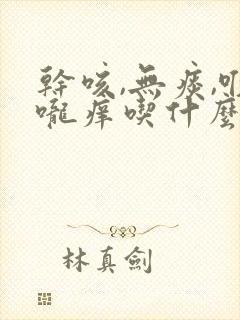 幹咳,無痰,
嚨癢喫什麼
林真劍